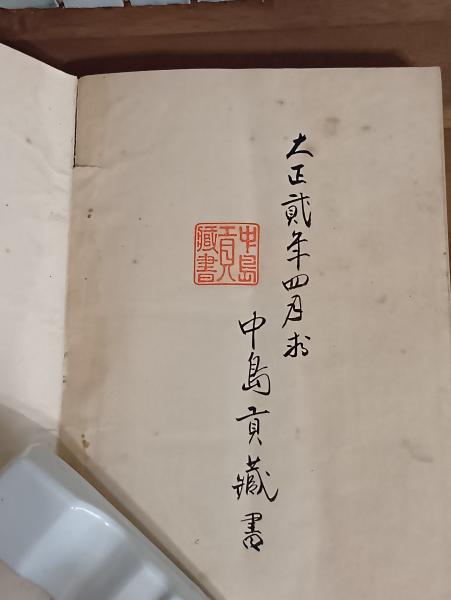 大正貳年四月求
中島貢藏書
中島
貢
藏書